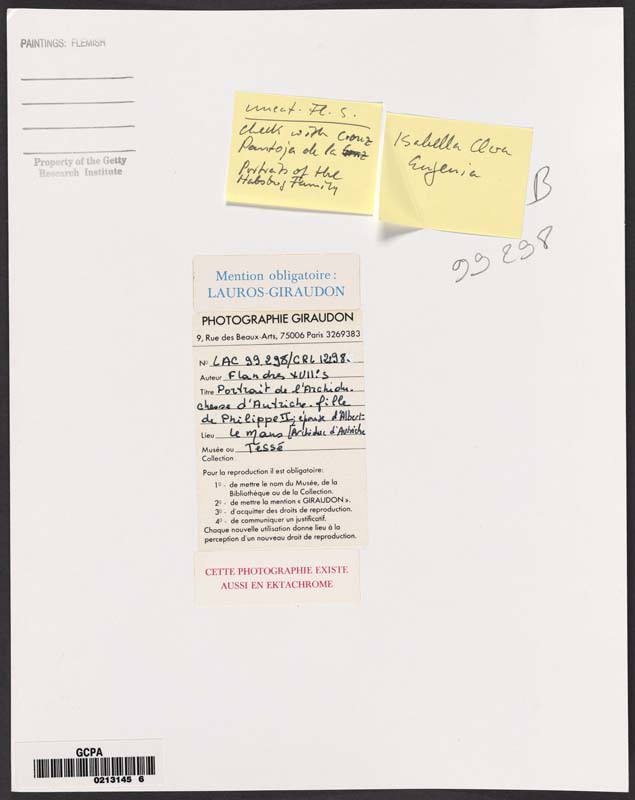 PAINTINGS: FLEMISH
Property of the Getty
Research Institute
uncat. Fl. S.
check with Cruz
Pantoja de la Cruz
Portraits of the
Habsburg Family
Isabella Clara
Eugenia
B
99 298
Mention obligatoire :
LAUROS-GIRAUDON
PHOTOGRAPHIE GIRAUDON
9, Rue des Beaux-Arts, 75006 Paris 3269383
No LAC 99 298/CRL 1298.
Auteur Flandres XVIIe s
Titre Portrait de l'Archidu-
chesse d'Autriche. fille
de Philippe II, épouse d'Albert
Lieu Le Mans [Archiduc d'Autriche
Musée ou Tessé
Collection
Pour la reproduction il est obligatoire:
1o - de mettre le nom du Musée, de la
Bibliothèque ou de la Collection.
2o - de mettre la mention « GIRAUDON ».
3o - d'acquitter des droits de reproduction.
4o - de communiquer un justificatif.
Chaque nouvelle utilisation donne lieu à la
perception d'un nouveau droit de reproduction.
CETTE PHOTOGRAPHIE EXISTE
AUSSI EN EKTACHROME
GCPA
0213145 6